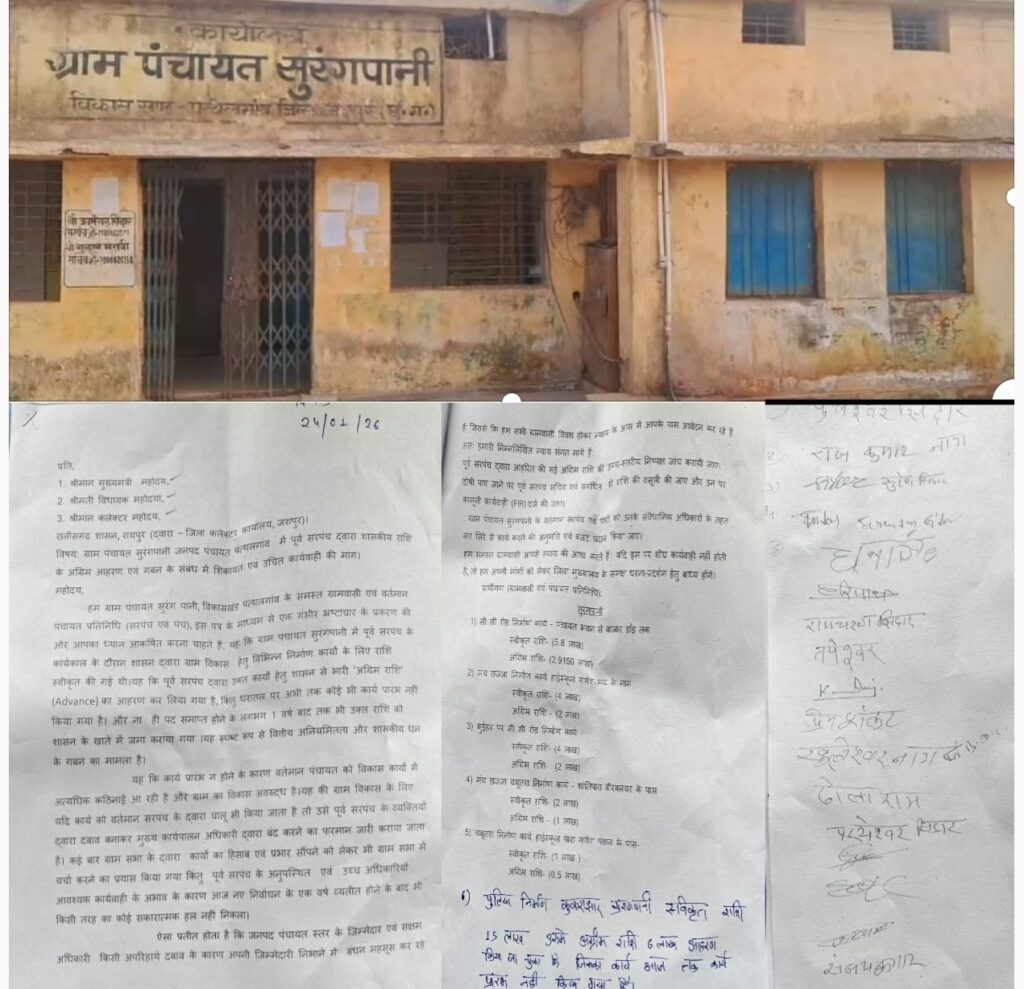 कार्यालय
ग्राम पंचायत सुरंगपानी
विकास खण्ड - पत्थलगांव, जिला
24/01/26
प्रति,
1. श्रीमान मुख्यमंत्री महोदय,
2. श्रीमती विधायक महोदया,
3. श्रीमान कलेक्टर महोदय,
छत्तीसगढ़ शासन, रायपुर (द्वारा – जिला कलेक्टर कार्यालय, जशपुर)।
विषय: ग्राम पंचायत सुरंगपानी जनपद पंचायत पत्थलगांव में पूर्व सरपंच द्वारा शासकीय राशि
के अग्रिम आहरण एवं गबन के संबंध में शिकायत एवं उचित कार्यवाही की मांग।
महोदय,
हम ग्राम पंचायत सुरंग पानी, विकासखंड पत्थलगांव के समस्त ग्रामवासी एवं वर्तमान
पंचायत प्रतिनिधि (सरपंच एवं पंच), इस पत्र के माध्यम से एक गंभीर भ्रष्टाचार के प्रकरण की
ओर आपका ध्यान आकर्षित करना चाहते हैं, यह कि ग्राम पंचायत सुरंगपानी में पूर्व सरपंच के
कार्यकाल के दौरान शासन द्वारा ग्राम विकास हेतु विभिन्न निर्माण कार्यों के लिए राशि
स्वीकृत की गई थी।यह कि पूर्व सरपंच द्वारा उक्त कार्यों हेतु शासन से भारी 'अग्रिम राशि'
(Advance) का आहरण कर लिया गया है, किंतु धरातल पर अभी तक कोई भी कार्य प्रारंभ नहीं
किया गया है। और ना ही पद समाप्त होने के लगभग 1 वर्ष बाद तक भी उक्त राशि को
शासन के खाते में जमा कराया गया।यह स्पष्ट रूप से वित्तीय अनियमितता और शासकीय धन
के गबन का मामला है।
यह कि कार्य प्रारंभ न होने के कारण वर्तमान पंचायत को विकास कार्यों में
अत्यधिक कठिनाई आ रही है और ग्राम का विकास अवरुद्ध है।यह की ग्राम विकास के लिए
यदि कार्य को वर्तमान सरपंच के द्वारा चालू भी किया जाता है तो उसे पूर्व सरपंच के व्यक्तियों
द्वारा दबाव बनाकर मुख्य कार्यपालन अधिकारी द्वारा बंद करने का फरमान जारी कराया जाता
है। कई बार ग्राम सभा के द्वारा कार्यों का हिसाब एवं प्रभार सौंपने को लेकर भी ग्राम सभा में
चर्चा करने का प्रयास किया गया किंतु पूर्व सरपंच के अनुपस्थित एवं उच्च अधिकारियों
आवश्यक कार्यवाही के अभाव के कारण आज नए निर्वाचन के एक वर्ष व्यतीत होने के बाद भी
किसी तरह का कोई सकारात्मक हल नहीं निकला।
ऐसा प्रतीत होता है कि जनपद पंचायत स्तर के जिम्मेदार एवं सक्षम
अधिकारी किसी अपरिहार्य दबाव के कारण अपनी जिम्मेदारी निभाने में बंधन महसूस कर रहे
है जिससे कि हम सभी ग्रामवासी विवश होकर न्याय के आस में आपके पास आवेदन कर रहे हैं
अतः हमारी निम्नलिखित न्याय संगत मांगे हैं:
पूर्व सरपंच द्वारा आहरित की गई अग्रिम राशि की उच्च-स्तरीय निष्पक्ष जांच करायी जाए।
दोषी पाए जाने पर पूर्व सरपंच सचिव एवं संबंधित से राशि की वसूली की जाए और उन पर
कानूनी कार्यवाही (FIR) दर्ज की जाए।
ग्राम पंचायत सुरंगपानी के वर्तमान सरपंच एवं पंचों को उनके संवैधानिक अधिकारों के तहत
नए सिरे से कार्य करने की अनुमति एवं बजट प्रदान किया जाए।
हम समस्त ग्रामवासी आपसे न्याय की आशा करते हैं। यदि इस पर शीघ्र कार्यवाही नहीं होती
है, तो हम अपनी मांगों को लेकर जिला मुख्यालय के समक्ष धरना-प्रदर्शन हेतु बाध्य होंगे।
प्रार्थीगण (ग्रामवासी एवं पंचायत प्रतिनिधि)
सुरंगपानी
1) सी सी रोड निर्माण कार्य - पंचायत भवन से बाजार डाँड़ तक
स्वीकृत राशि- (5.8 लाख)
अग्रिम राशि- (2.9150 लाख)
2) मंच छज्जा निर्माण कार्य हाईस्कूल गणेश मंच के पास
स्वीकृत राशि- (4 लाख)
अग्रिम राशि - (2 लाख)
3) मुड़हर पर सी सी रोड निर्माण कार्य
स्वीकृत राशि- (4 लाख)
अग्रिम राशि- (2 लाख)
4) मंच छज्जा चबूतरा निर्माण कार्य - शांतिपारा बीरबलघर के पास
स्वीकृत राशि- (2 लाख)
अग्रिम राशि- (1 लाख)
5) चबूतरा निर्माण कार्य हाईस्कूल पारा गणेश पंडाल के पास-
स्वीकृत राशि- (1 लाख )
अग्रिम राशि- (0.5 लाख)
6) पुलिया निर्माण सुरंगपानी स्विकृत राशि
15 लाख अग्रीम राशि 6 लाख आहरण
किया जा चुका है जिसका कार्य आज तक कार्य
प्रारंभ नही किया गया है।
राज कुमार नाग
सुरेश सिदार
हरिपाल
रामचरण सिदार
तपेश्वर
प्रेमशंकर
ढोलाराम
परमेश्वर सिदार
संजय कुमार